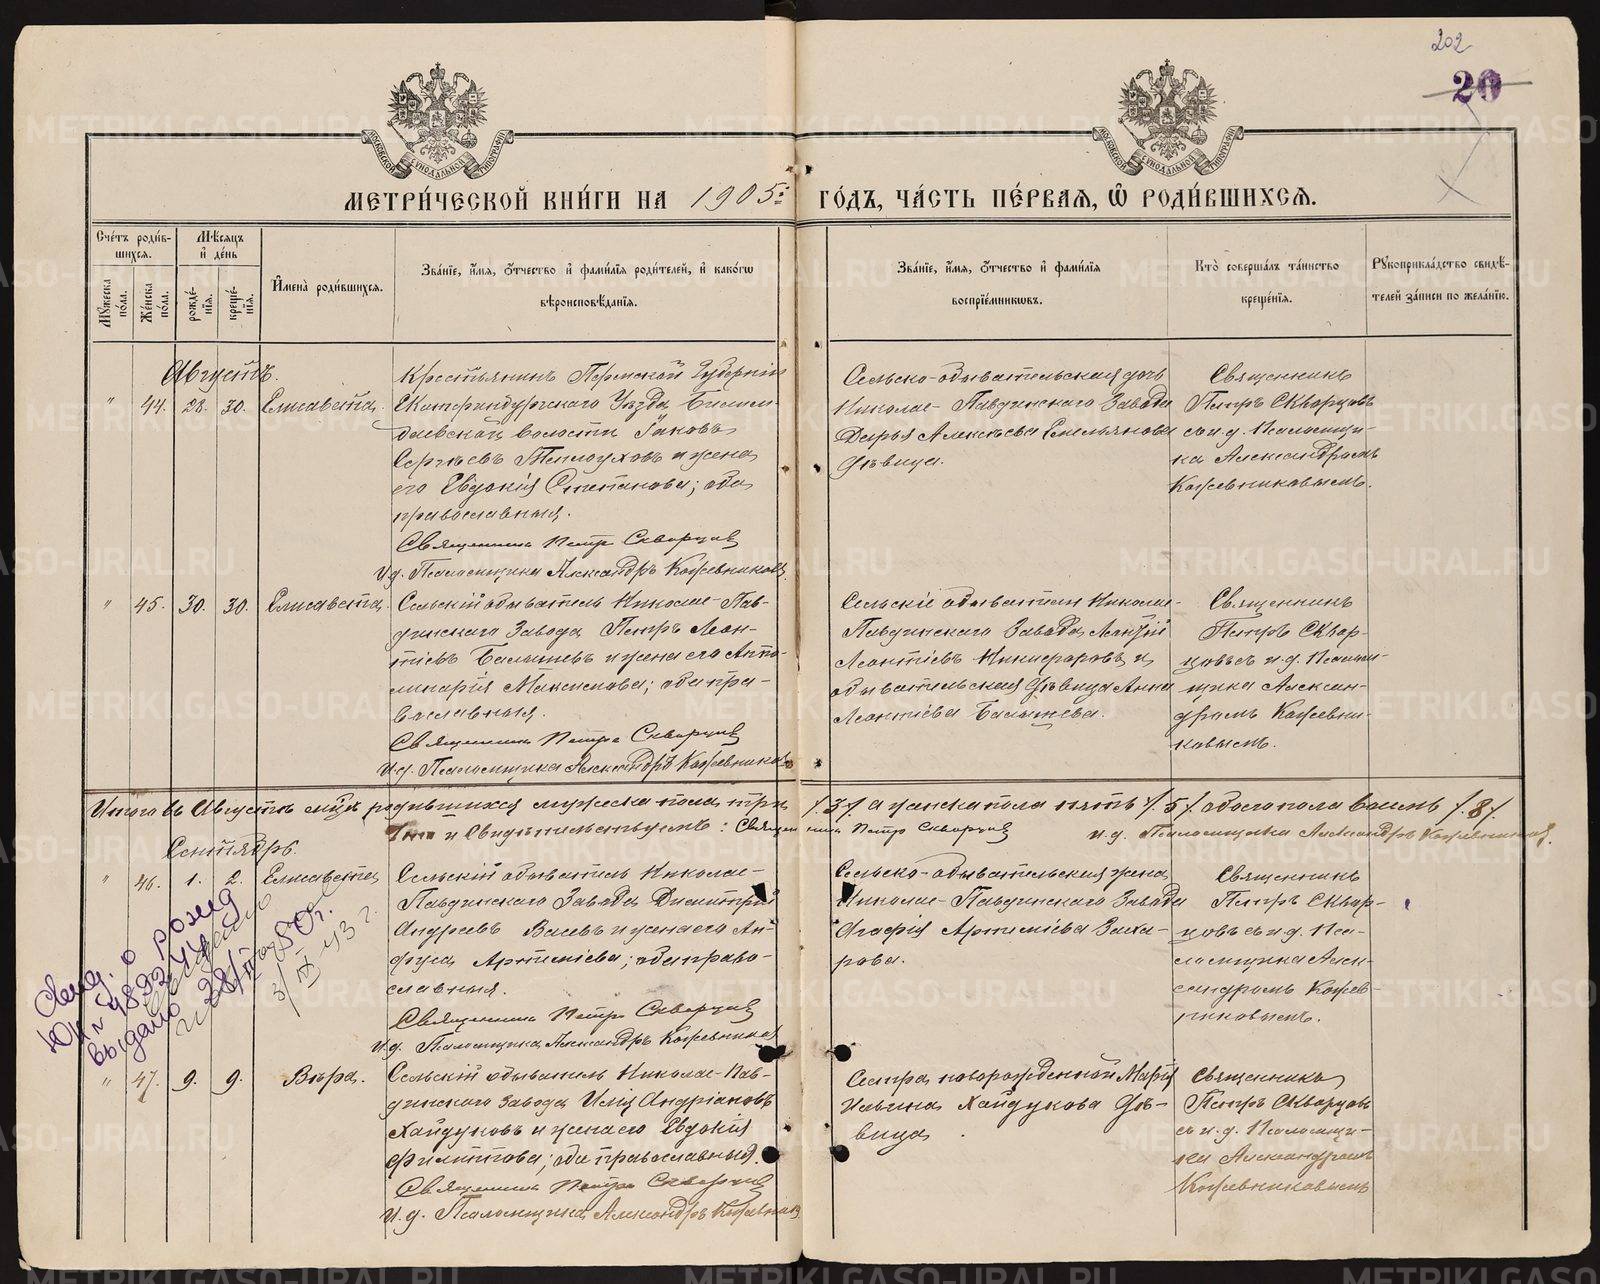 202
20
МОСКОВСКОЙ СѴНОДАЛЬНОЙ ТИПОГРАФІИ
МОСКОВСКОЙ СѴНОДАЛЬНОЙ ТИПОГРАФІИ
МЕТРИ́ЧЕСКОЙ КНИ́ГИ НА 1905й ГО́ДЪ, ЧА́СТЬ ПЕ́РВАѦ, Ѡ РОДИ́ВШИХСѦ.
Сче́тъ роди́в-
шихсѧ.
Мꙋ́жеска по́ла.
Же́нска по́ла.
Мѣ́сѧцъ и҆ де́нь
рожде́-
нїѧ.
креще́-
нїѧ.
И҆мена̀ роди́вшихсѧ.
Зва́нїе, и҆́мѧ, ѻ҆́тчество и҆ фами́лїѧ роди́телей, и҆ како́гѡ
вѣроисповѣ́данїѧ.
Зва́нїе, и҆́мѧ, ѻ҆́тчество и҆ фами́лїѧ
воспрїе́мникѡвъ.
Кто̀ соверша́лъ та́инство
креще́нїѧ.
Рꙋкоприкла́дство свидѣ́-
телей за́писи по жела́нїю.
Августъ.
" 44. 28. 30. Елисавета.
Крестьянинъ Пермской Губерніи
Екатеринбургскаго Уѣзда, Билим-
баевской волости Іаковъ
Сергѣевъ Теплоуховъ и жена
его Евдокія Степанова; оба
православныя.
Священникъ Петръ Скворцовъ
И.д. Псаломщика Александръ Кожевниковъ
Сельско-обывательская дочь
Николае-Павдинскаго Завода
Дарья Алексѣева Емельянова
дѣвица.
Священникъ
Петръ Скворцовъ
съ и.д. Псаломщи-
ка Александромъ
Кожевниковымъ.
" 45. 30. 30. Елисавета.
Сельскій обыватель Николае-Пав-
динскаго Завода Петръ Леон-
тіевъ Балашевъ и жена его Аппо-
линарія Максимова; оба пра-
вославныя.
Священникъ Петръ Скворцовъ
И.д. Псаломщика Александръ Кожевниковъ
Сельскіе обыватели Николае-
Павдинскаго Завода
Леонтіевъ Никифоровъ и
обывательская дѣвица Анна
Леонтіева Балашева.
Священникъ
Петръ Сквор-
цовъ съ и.д. Псалом-
щика Алексан-
дромъ Кожевни-
ковымъ.
Итого въ Августѣ м-цѣ родившихся мужеска пола три /.3/. а женска пола пять /.5/. обоего пола восемь /.8/.
и Свидѣтельствуемъ: Священникъ Петръ Скворцовъ и.д. Псаломщика Александръ Кожевниковъ.
Сентябрь.
" 46. 1. 2. Елисавета
Сельскій обыватель Николае-
Павдинскаго Завода Димитрій
Андреевъ Васевъ и жена его Ан-
фуса Артеміева; оба право-
славныя.
Священникъ Петръ Скворцовъ
И.д. Псаломщика Александръ Кожевниковъ
Сельско-обывательская жена
Николае-Павдинскаго Завода
Агафія Артеміева Заха-
рова.
Священникъ
Петръ Сквор-
цовъ съ и.д. Пса-
ломщика Алек-
сандромъ Кожев-
никовымъ.
Свид. о рожд
ЮЧ № 489244
выдано 28/II 50 г.
3/IX-43 г.
" 47. 9. 9. Вѣра.
Сельскій обыватель Николае-Пав-
динскаго Завода Илія Андріановъ
Хайдуковъ и жена его Евдокія
Филиппова; оба православныя.
Священникъ Петръ Скворцовъ
И.д. Псаломщика Александръ Кожевниковъ
Сестра новорожденной Марія
Ильина Хайдукова дѣ-
вица.
Священникъ
Петръ Скворцовъ
съ и.д. Псаломщи-
ка Александромъ
Кожевниковымъ
METRIKI.GASO-URAL.RU